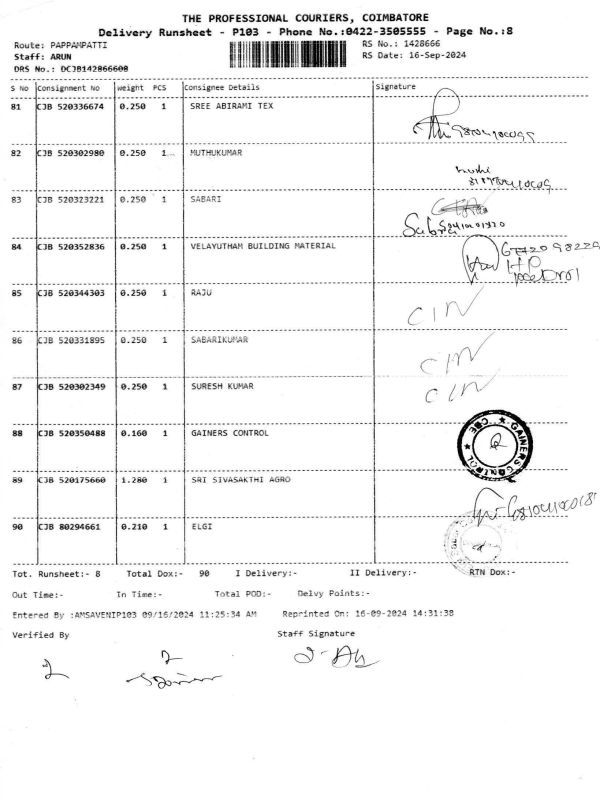 THE PROFESSIONAL COURIERS, COIMBATORE
Delivery Runsheet - P103 - Phone No.:0422-3505555 - Page No.:8
Route: PAPPAMPATTI RS No.: 1428666
Staff: ARUN RS Date: 16-Sep-2024
DRS No.: DCJB142866608
S No Consignment No Weight PCS Consignee Details Signature
81 CJB 520336674 0.250 1 SREE ABIRAMI TEX
82 CJB 520302980 0.250 1... MUTHUKUMAR
83 CJB 520323221 0.250 1 SABARI
84 CJB 520352836 0.250 1 VELAYUTHAM BUILDING MATERIAL
85 CJB 520344303 0.250 1 RAJU CIN
86 CJB 520331895 0.250 1 SABARIKUMAR CIN
87 CJB 520302349 0.250 1 SURESH KUMAR CIN
88 CJB 520350488 0.160 1 GAINERS CONTROL GAINERS CONTROL CBE
89 CJB 520175660 1.280 1 SRI SIVASAKTHI AGRO
90 CJB 80294661 0.210 1 ELGI
Tot. Runsheet:- 8 Total Dox:- 90 I Delivery:- II Delivery:- RTN Dox:-
Out Time:- In Time:- Total POD:- Delvy Points:-
Entered By :AMSAVENIP103 09/16/2024 11:25:34 AM Reprinted On: 16-09-2024 14:31:38
Verified By Staff Signature